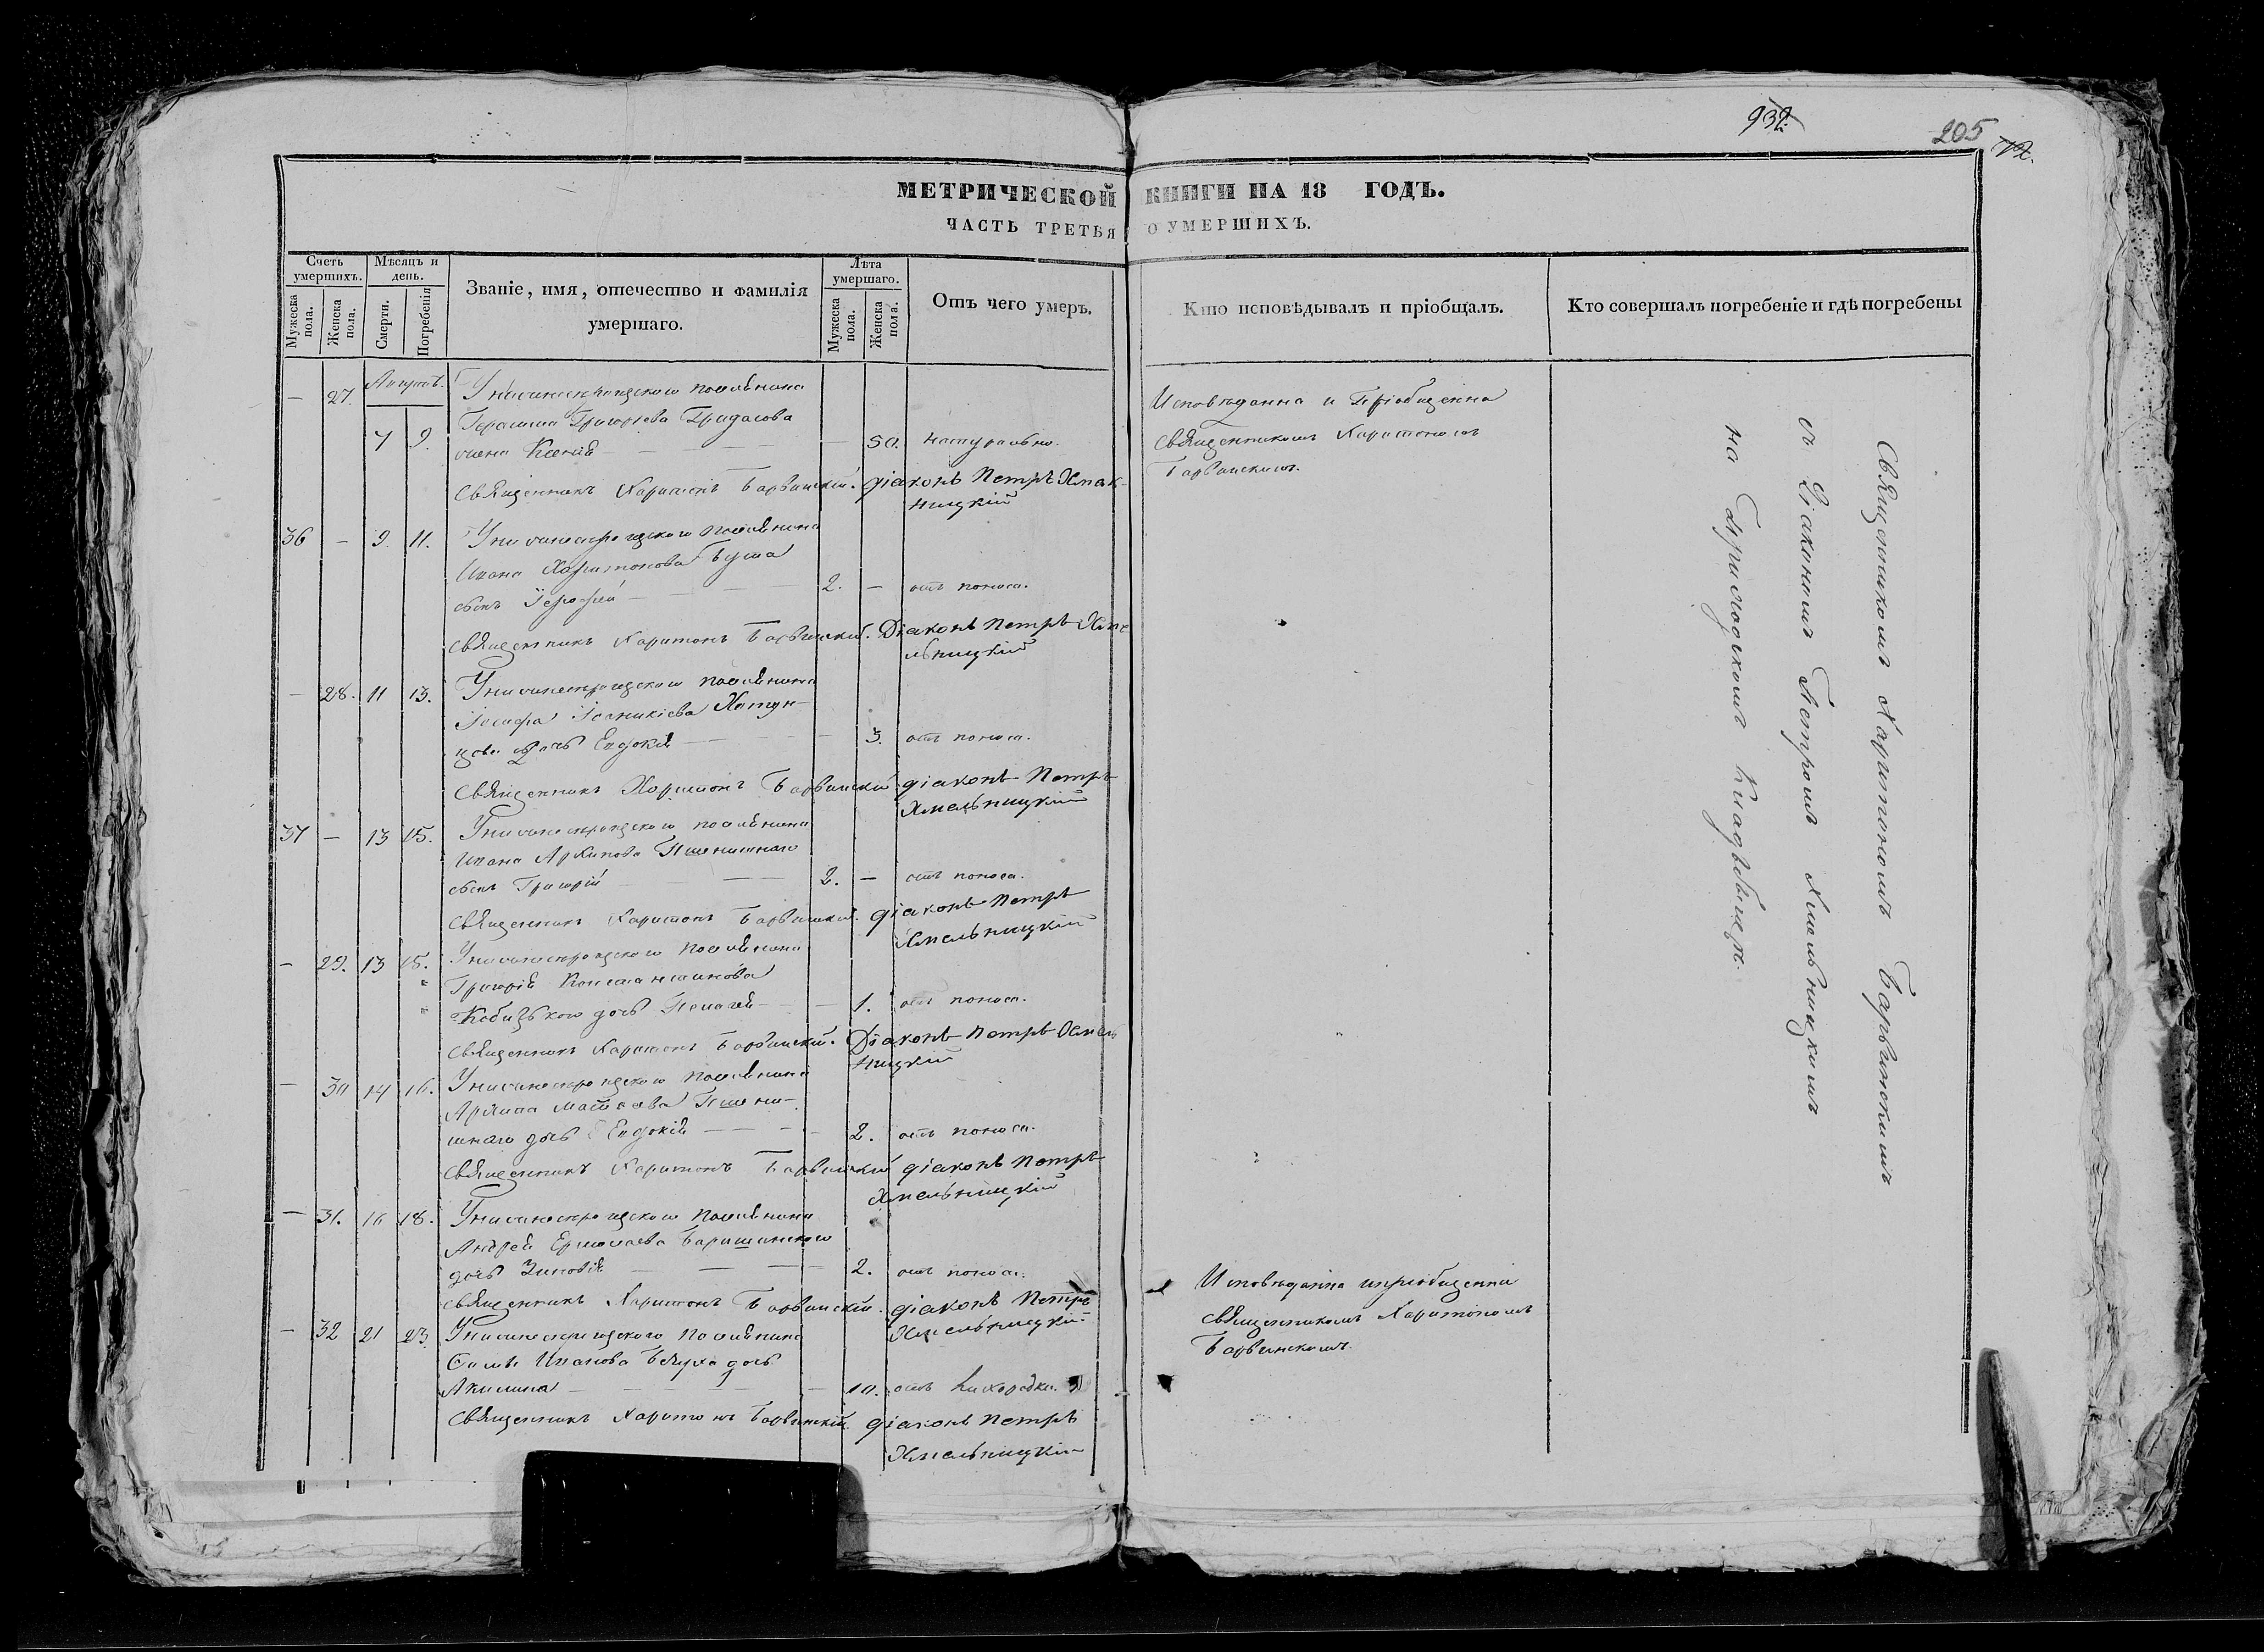 932.
205
МЕТРИЧЕСКОЙ КНИГИ НА 18 ГОДЪ.
ЧАСТЬ ТРЕТЬЯ О УМЕРШИХЪ.
Счетъ умершихъ.
Мужеска пола.
Женска пола.
Мѣсяцъ и день.
Смерти.
Погребенія
Званіе, имя, отечество и фамилія
умершаго.
Лѣта умершаго.
Мужеска пола.
Женска пола.
Отъ чего умеръ.
Кто исповѣдывалъ и пріобщалъ.
Кто совершалъ погребеніе и гдѣ погребены
Августъ.
— 27. 7 9. поселянина
Герасима Григорьева
жена Ксенія — 50. натурально.
Священникъ Харитонъ Барвинскій. Діаконъ Петръ Хмель-
ницкій
Исповѣданна и Пріобщенна
Священникомъ Харитономъ
Барвинскимъ.
36 — 9 11. поселянина
Ивана Харитонова
сынъ 2. — отъ поноса.
Священникъ Харитонъ Барвинскій. Діаконъ Петръ Хме-
льницкій
— 28. 11 13. поселянина
Іосифа Іоаникіева
дочь Евдокія — 3. отъ поноса.
Священникъ Харитонъ Барвинскій Діаконъ Петръ
Хмельницкій
37 — 13 15. поселянина
Ивана Архипова Пшенишнаго
сынъ Григорій 2. — отъ поноса.
Священникъ Харитонъ Барвинскій. Діаконъ Петръ
Хмельницкій
— 29. 13 15. поселянина
Григорія Константинова
дочь Пелагея — 1. отъ поноса.
Священникъ Харитонъ Барвинскій. Діаконъ Петръ Хмель
ницкій
— 30 14 16. поселянина
Архипа Матвѣева Пшени-
шнаго дочь Евдокія — 2. отъ поноса.
Священникъ Харитонъ Барвинскій Діаконъ Петръ
Хмельницкій
— 31. 16 18. поселянина
Андрея Ермолаева
дочь Зиновія — 2. отъ поноса.
Священникъ Харитонъ Барвинскій. Діаконъ Петръ
Хмельницкій
— 32 21 23 поселянина
Иванова дочь
Акилина — 10. отъ лихорадки.
Священникъ Харитонъ Барвинскій. Діаконъ Петръ
Хмельницкій
Исповѣданна и пріобщенна
Священникомъ Харитономъ
Барвинскимъ.
Священникомъ Харитономъ Барвинскимъ
съ Діакономъ Петромъ Хмельницкимъ
на Приходскомъ Кладбищѣ.